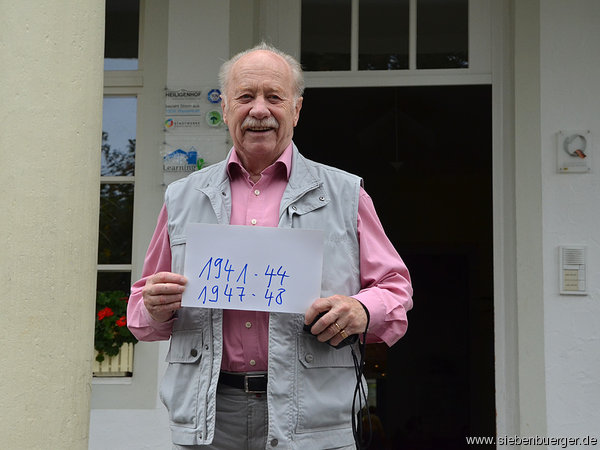 HEILIGENHOF
Learning
1941-44
1947-48
www.siebenbuerger.de